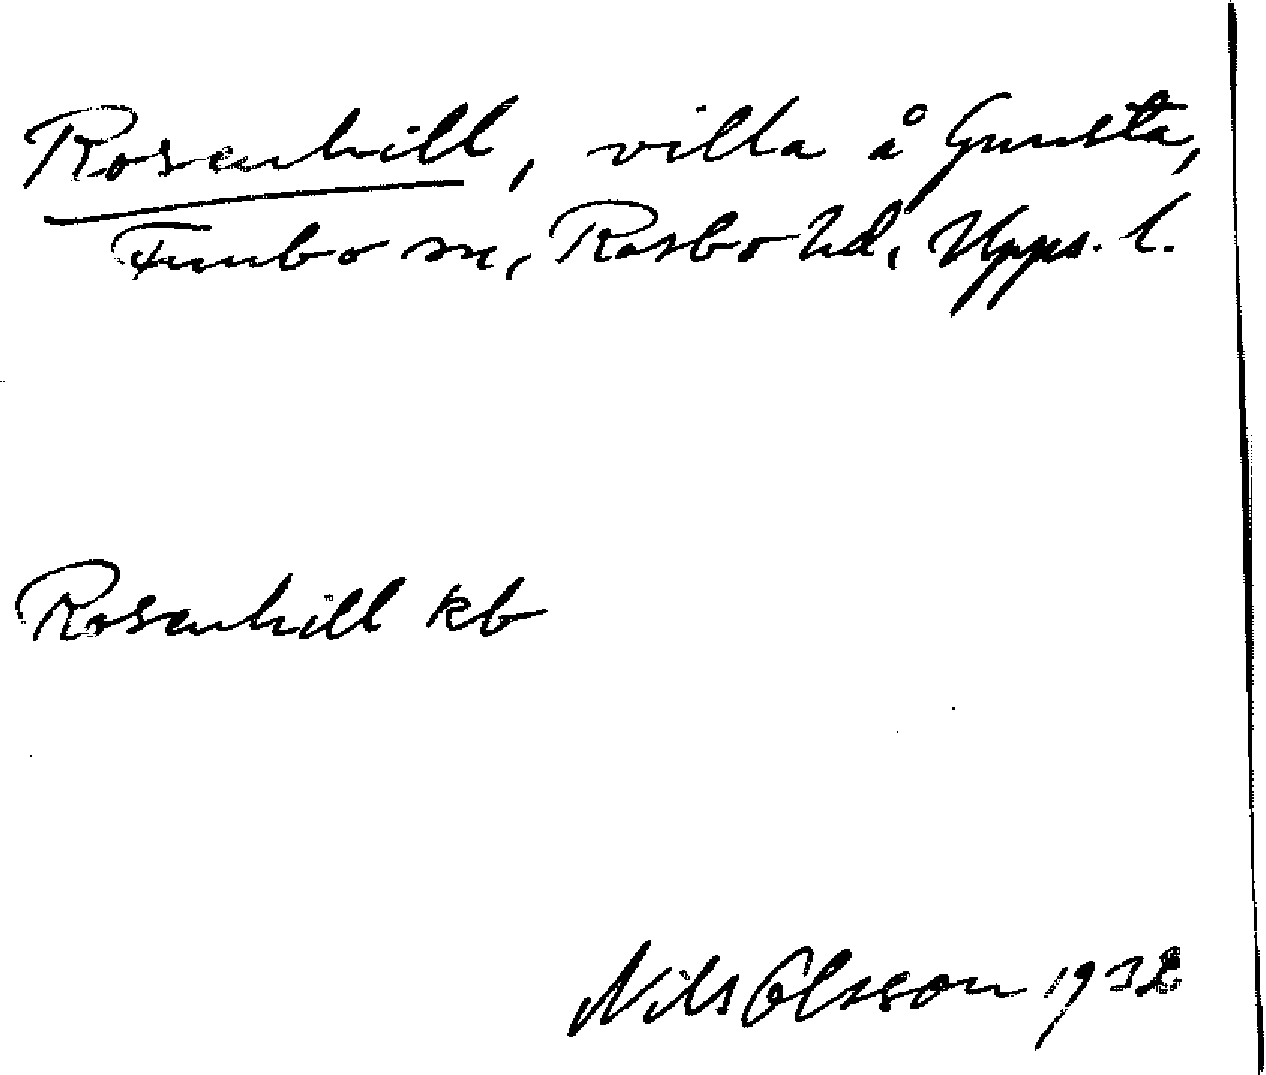 Rosenhill, villa å Gunsta,
Funbo sn, Rasbo hd, Upps. l.
Rosenhill kb
Nils Olsson 1932